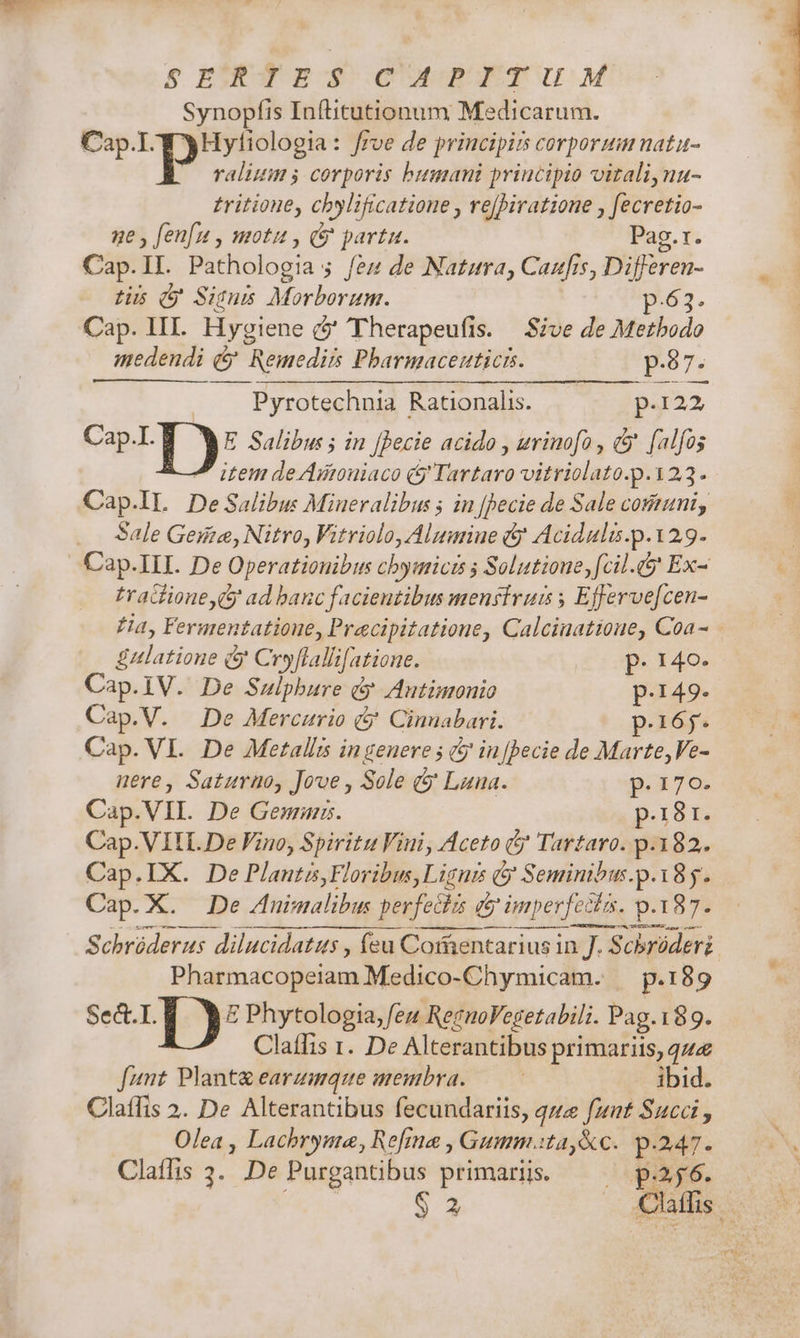 SERIES CAPITUM
Synopſis Inſtitutionum Medicarum.
Cap.I. PHyſiologia: ſive de principiis corporum natu-
ralium; corporis humani principio vitali, nu-
tritione, chylificatione, reſpiratione, ſecretio-
ne, ſenſu, motu, & partu. Pag.1.
Cap.II. Pathologia; ſeu de Natura, Cauſis, Differen-
tiis & Signis Morborum. p.63.
Cap. III. Hygiene & Therapeuſis. Sive de Methodo
medendi & Remediis Pharmaceuticis. p.87.
Pyrotechnia Rationalis. p.122
Cap.I. DE Salibus; in ſpecie acido, urinoſo, & ſalſos
item de Am̃oniaco & Tartaro vitriolato.p.123.
Cap.II. De Salibus Mineralibus; in ſpecie de Sale com̃uni,
Sale Gem̃æ, Nitro, Vitriolo, Alumine & Acidulis.p.129.
Cap.III. De Operationibus chymicis; Solutione, ſcil.& Ex-
tractione,& ad hanc facientibus menstruis; Efferveſcen-
tia, Fermentatione, Præcipitatione, Calcinatione, Coa-
gulatione & Cryſtalliſatione. p. 140.
Cap.IV. De Sulphure & Antimonio p.149.
Cap.V. De Mercurio & Cinnabari. p.165.
Cap. VI. De Metallis in genere; & in ſpecie de Marte, Ve-
nere, Saturno, Jove, Sole & Luna. p.170.
Cap.VII. De Gemmis. p.181.
Cap.VIII.De Vino, Spiritu Vini, Aceto & Tartaro. p.182.
Cap.IX. De Plantis,Floribus,Lignis & Seminibus.p.185.
Cap.X. De Animalibus perfectis & imperfectis. p.187.
Schröderus dilucidatus, ſeu Com̃entarius in J. Schröderi
Pharmacopeiam Medico-Chymicam. p.189
Sect.I. DE Phytologia,ſeu RegnoVegetabili. Pag.189.
Claſſis 1. De Alterantibus primariis, quæ
ſunt Plantæ earumque membra. ibid.
Claſſis 2. De Alterantibus ſecundariis, quæ ſunt Succi,
Olea, Lachrymæ, Reſinæ, Gummata,&c. p.247.
Claſſis 3. De Purgantibus primariis. p.256.
§ 2 Claſſis